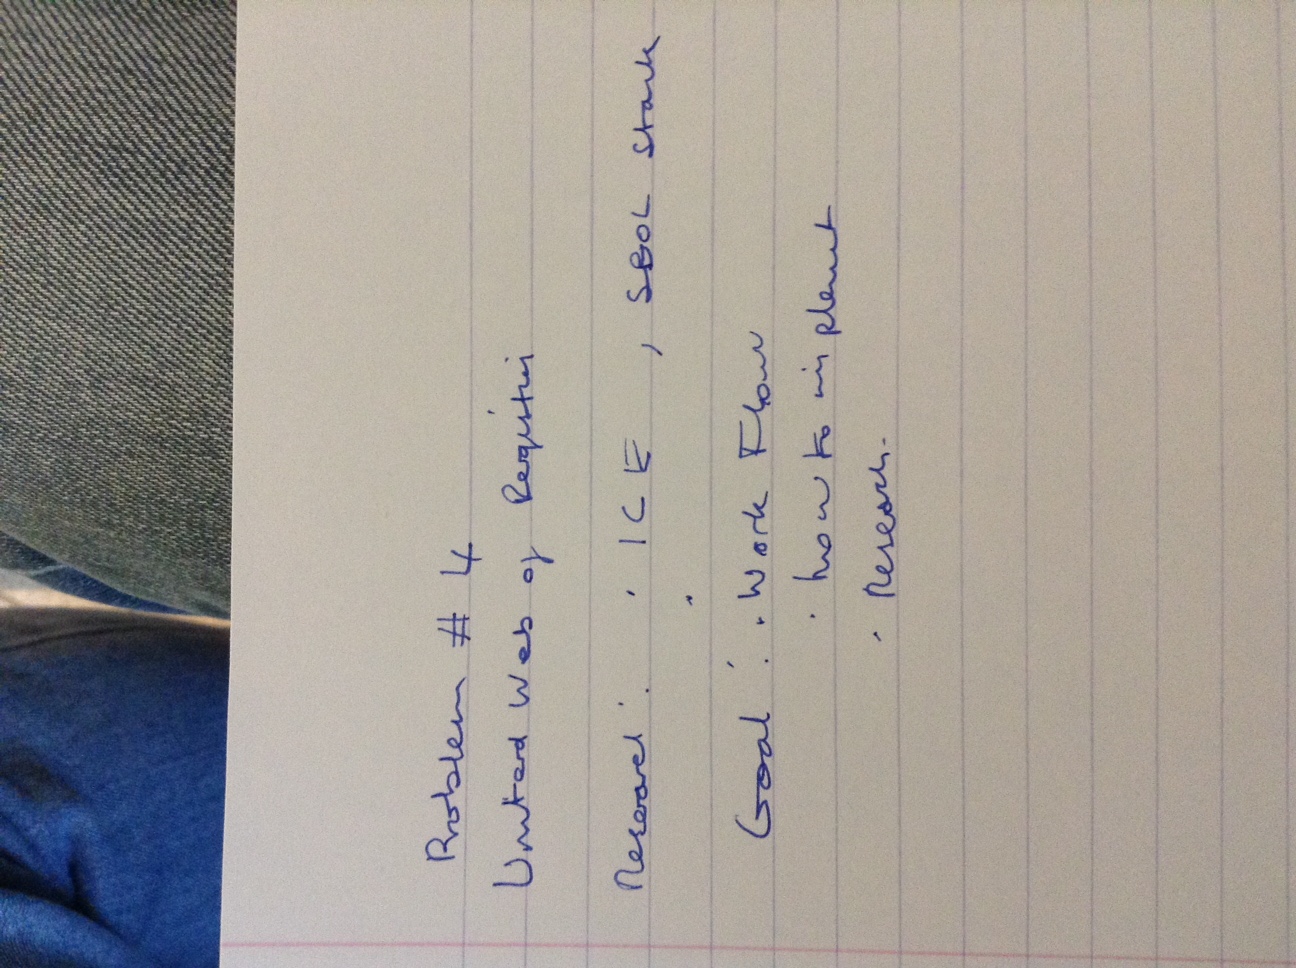 Problem # 4
United Web of Registries
Research : · ICE , SBOL Stack
·
Goal : · Work Flow
· how to implement
· Research.